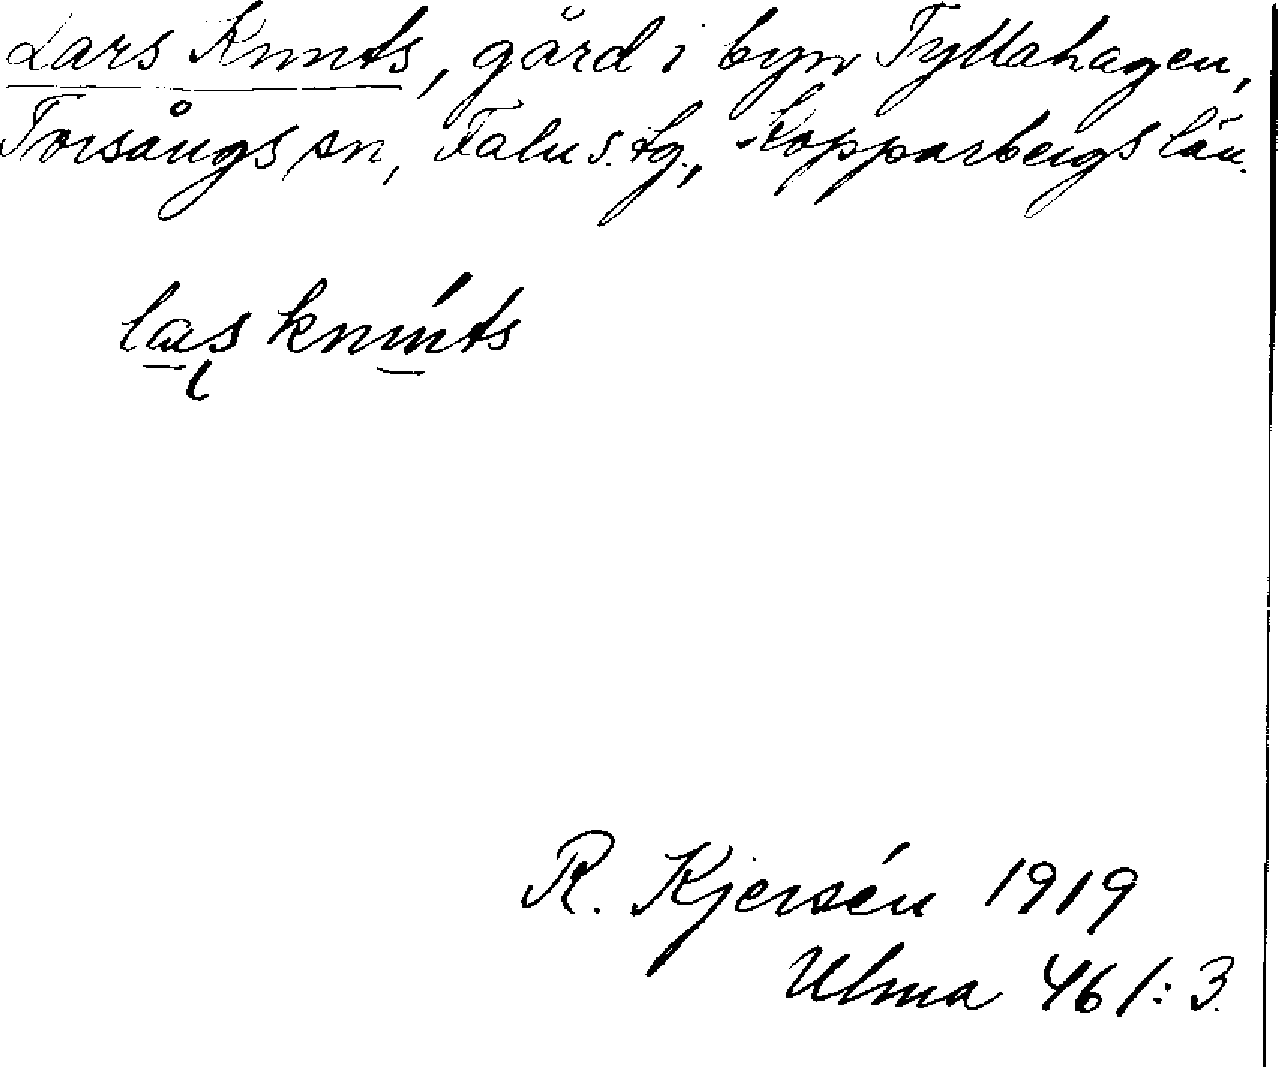 Lars Knuts, gård i byn Tyllahagen,
Torsångs sn, Falu s. tg., Kopparbergs län.
las knuts
R. Kjersén 1919
Ulma 461:3.